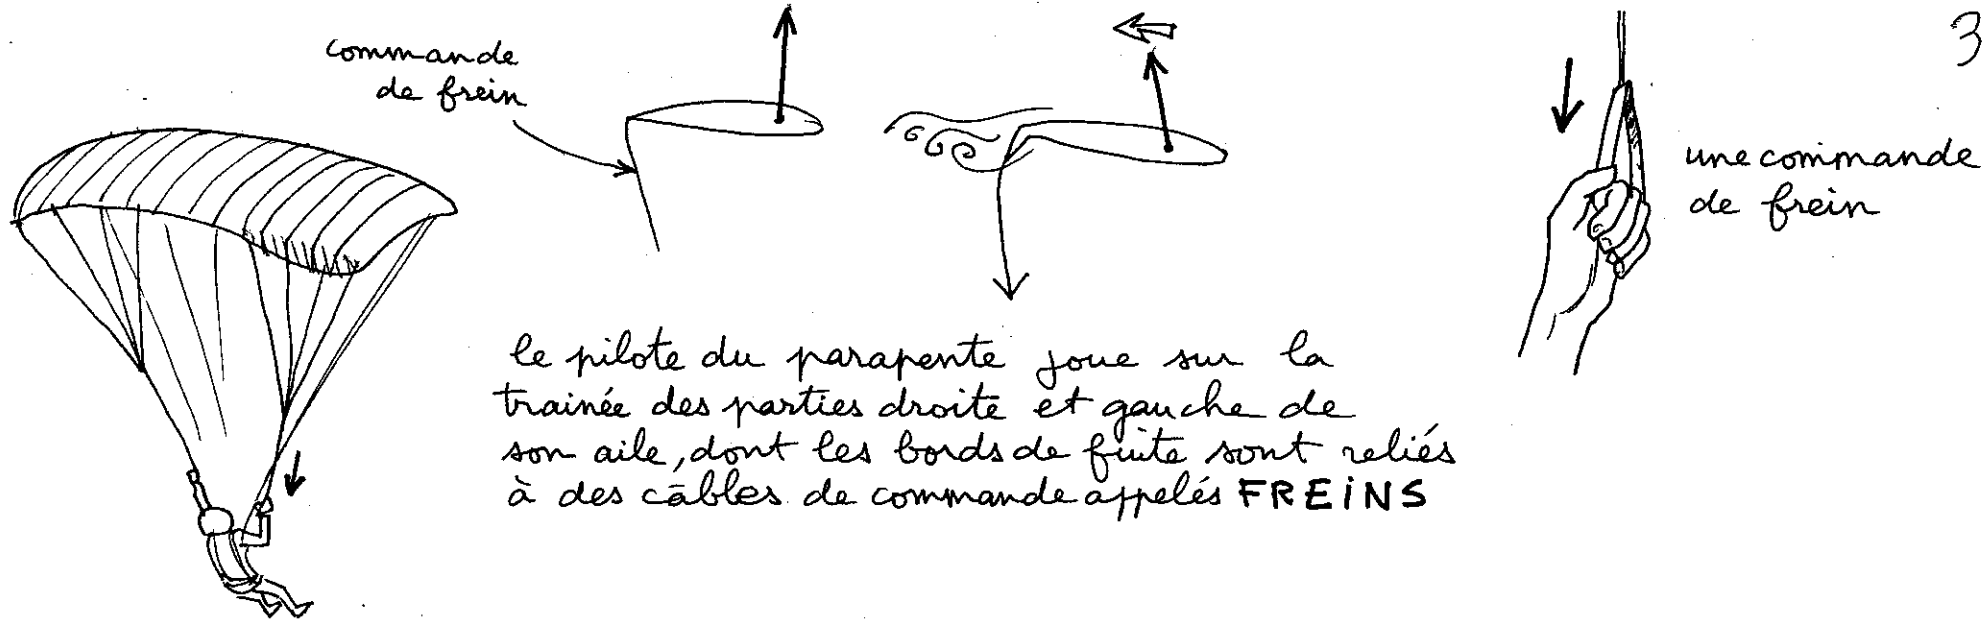 commande
de frein
3
une commande
de frein
le pilote du parapente joue sur la
trainée des parties droite et gauche de
son aile, dont les bords de fuite sont reliés
à des câbles de commande appelés FREiNS